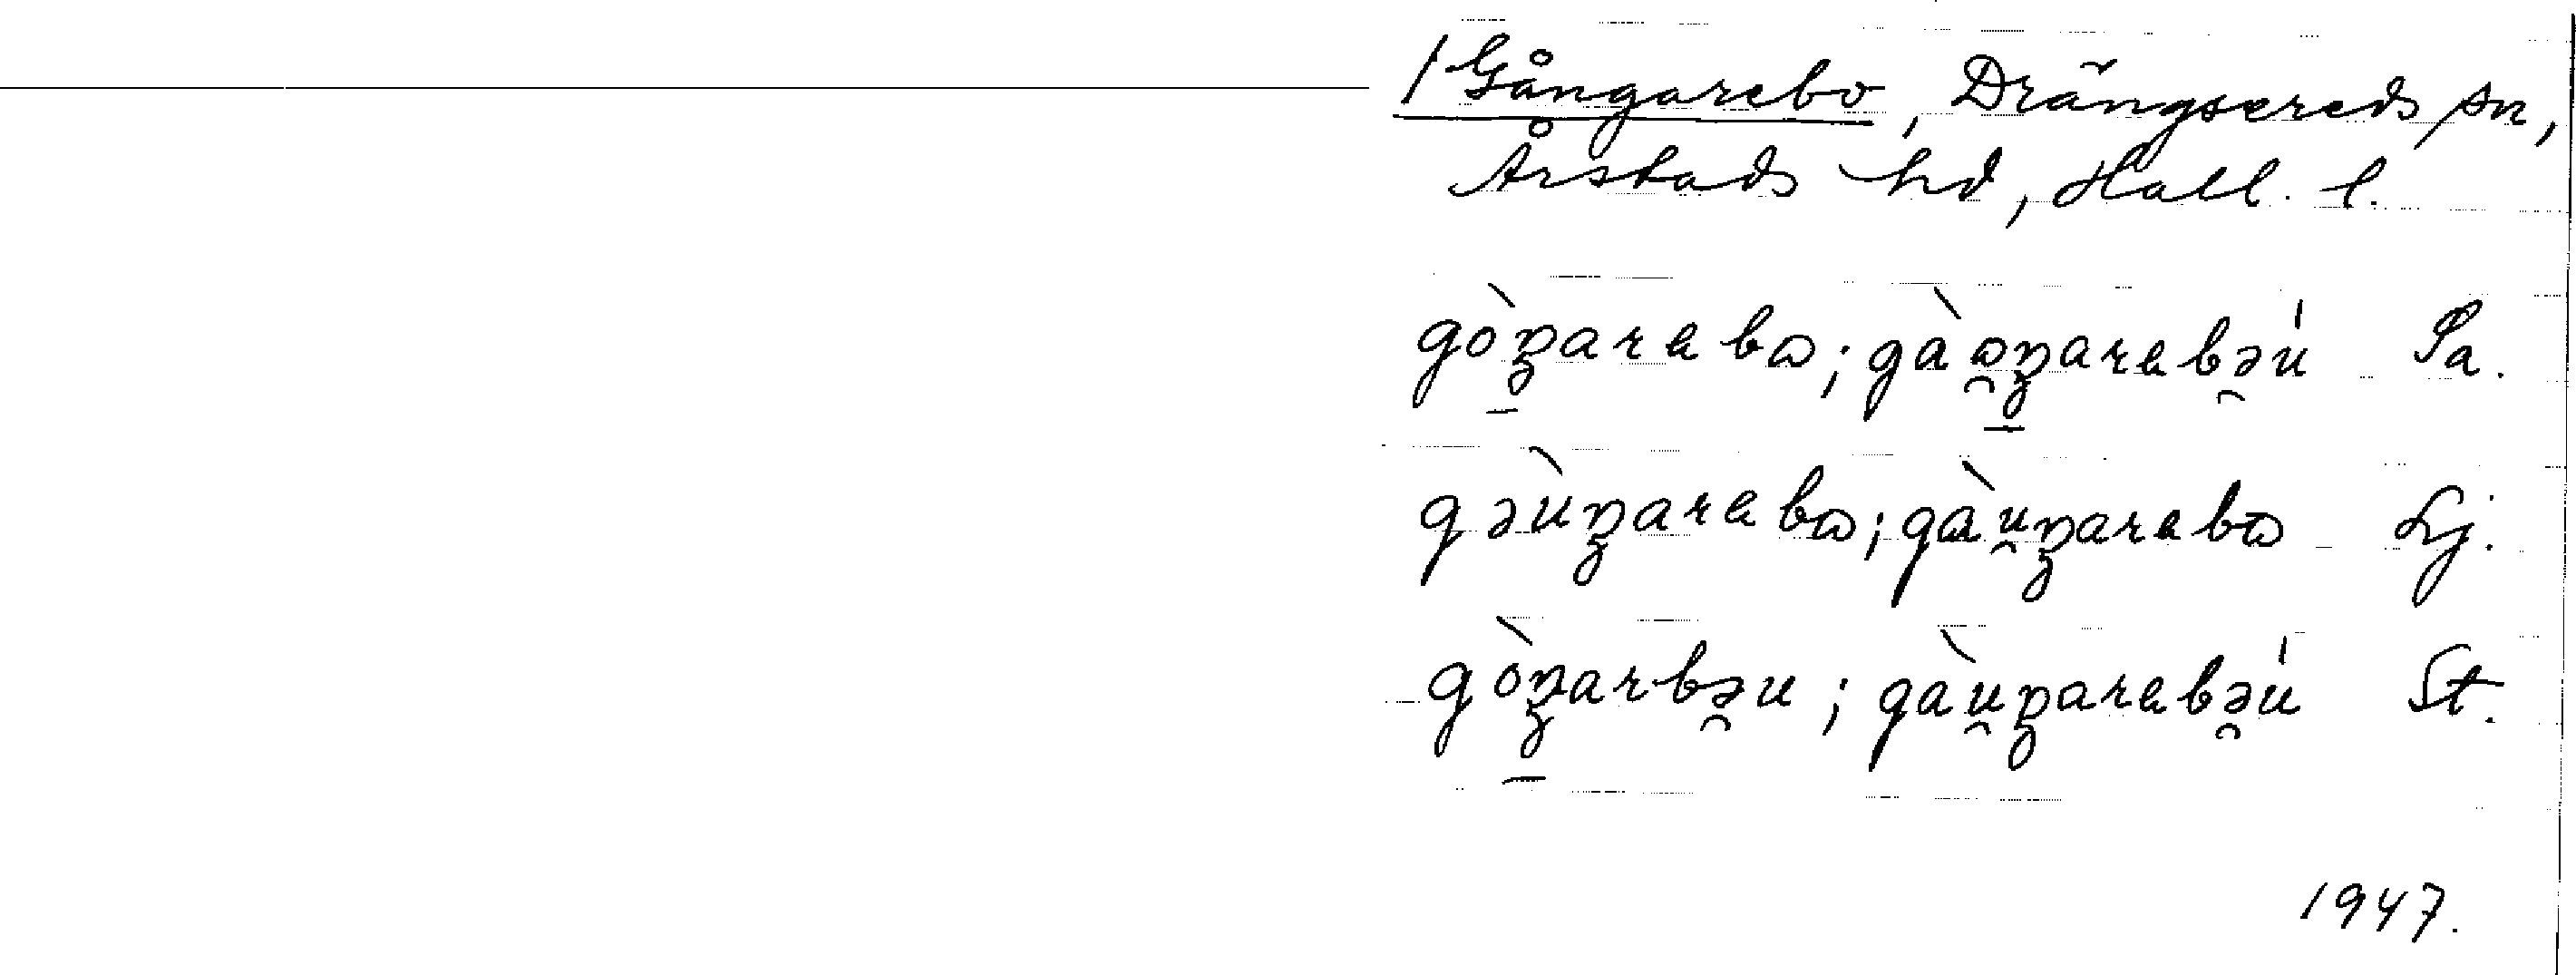 /Gångarebo, Drängsereds sn,
Årstads hd, Hall. l.
gòŋarebɷ; gàoŋarebəú Sa.
gəùŋarebɷ; gàuŋarebɷ Lj.
gòŋarbəu; gàuŋarebəú St.
1947.